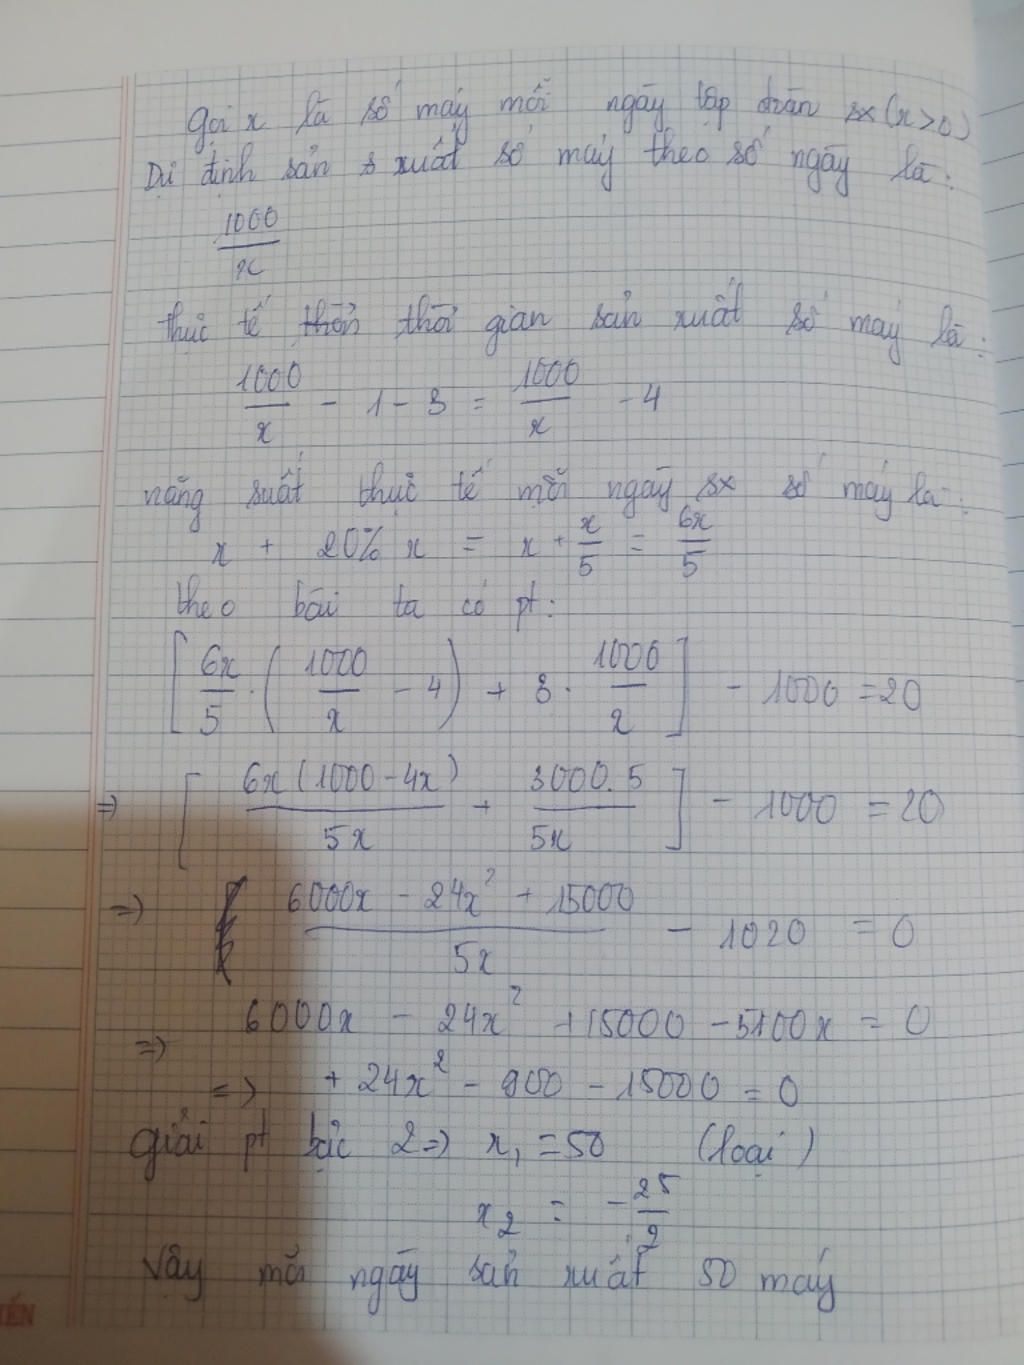 Gọi x là số máy mỗi ngày tập đoàn sx (x>0)
Dự định sản s xuất số máy theo số ngày là:
1000/x
thực tế thời gian sản xuất số máy là:
1000/x - 1 - 3 = 1000/x - 4
năng suất thực tế mỗi ngày sx số máy là:
x + 20% x = x + x/5 = 6x/5
theo bài ta có pt:
[6x/5 . (1000/x - 4) + 3 . 1000/x] - 1000 = 20
=> [6x(1000 - 4x)/5x + 3000.5/5x] - 1000 = 20
=> (6000x - 24x² + 15000)/5x - 1020 = 0
=> 6000x - 24x² + 15000 - 5100x = 0
=> + 24x² - 900 - 15000 = 0
giải pt bậc 2 => x₁ = 50 (loại)
x₂ = -25/2
Vậy mỗi ngày sản xuất 50 máy
ẾN